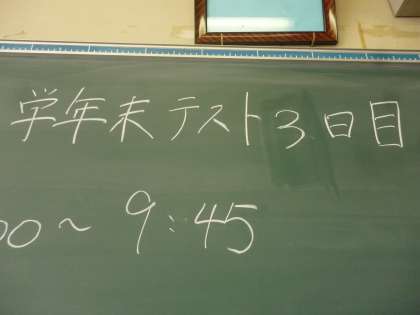 学年末テスト3日目
00〜9:45